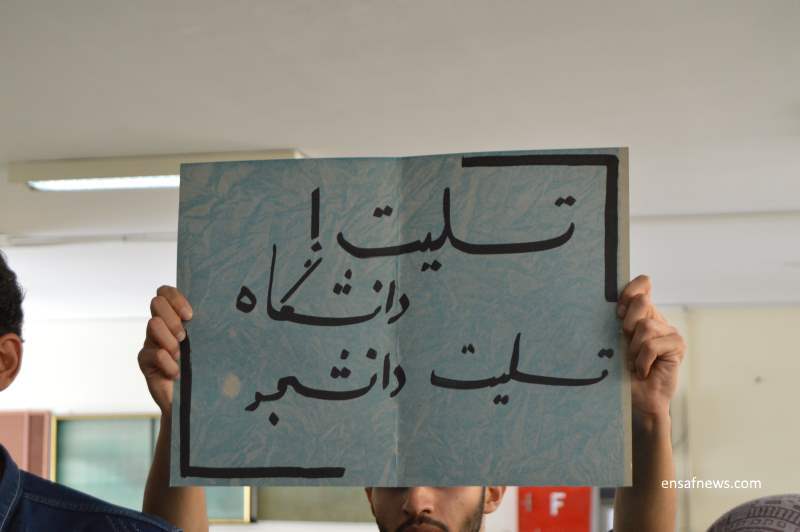 تسلیت!
دانشگاه
تسلیت دانشجو
ensafnews.com
F